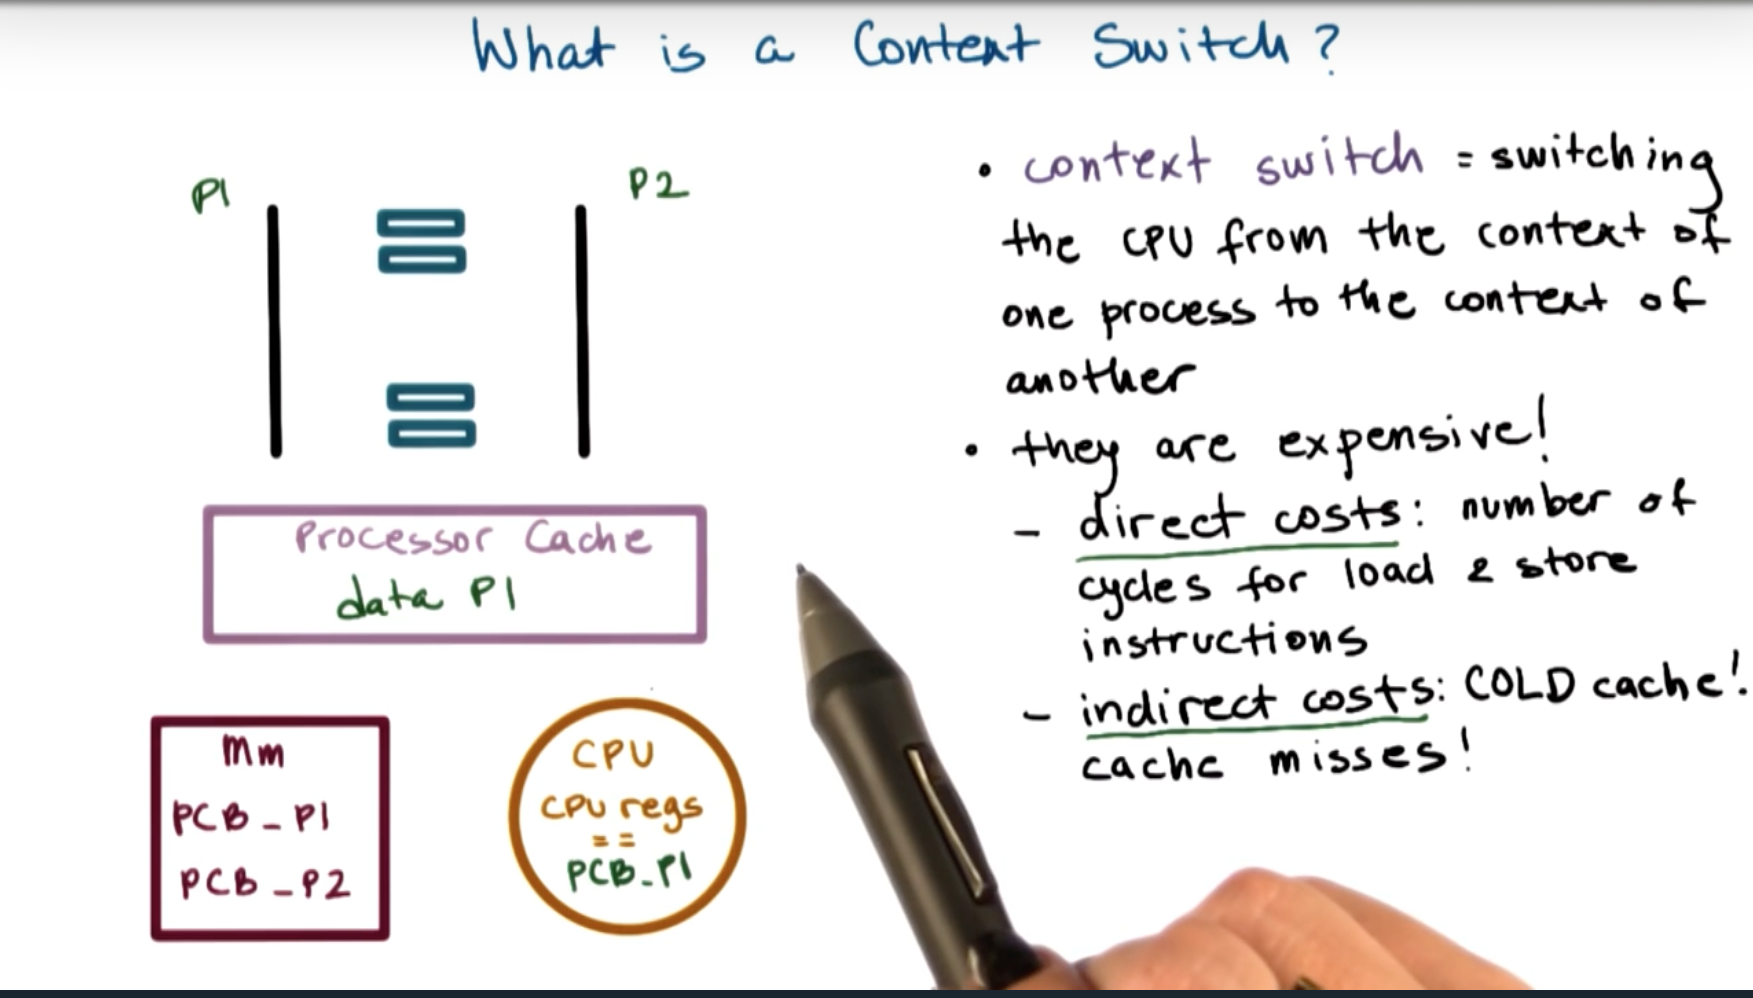 What is a Context Switch?
P1
P2
Processor Cache
data P1
mm
PCB_P1
PCB_P2
CPU
CPU regs
==
PCB_P1
• context switch = switching
the CPU from the context of
one process to the context of
another
• they are expensive!
- direct costs: number of
cycles for load & store
instructions
- indirect costs: COLD cache!
cache misses!